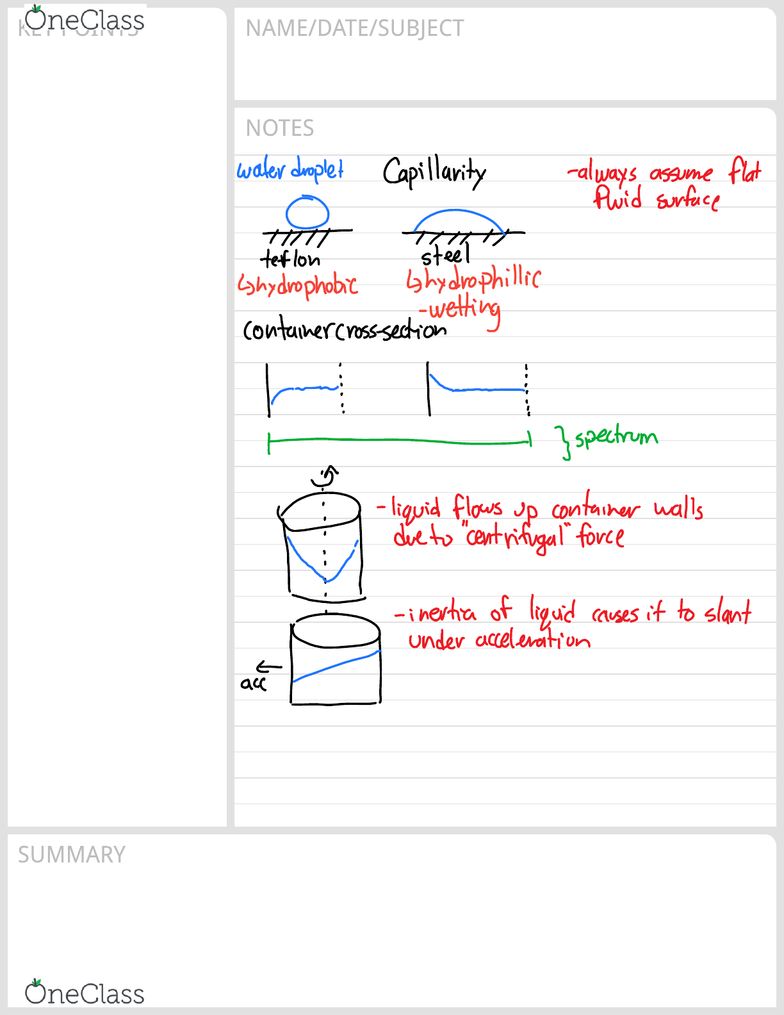 OneClass
KEY POINTS
NAME/DATE/SUBJECT
NOTES
water droplet
Capillarity
-always assume flat
fluid surface
teflon
steel
↳hydrophobic
↳hydrophillic
-wetting
container cross-section
} spectrum
- liquid flows up container walls
due to "centrifugal" force
-inertia of liquid causes it to slant
under acceleration
acc
SUMMARY
OneClass